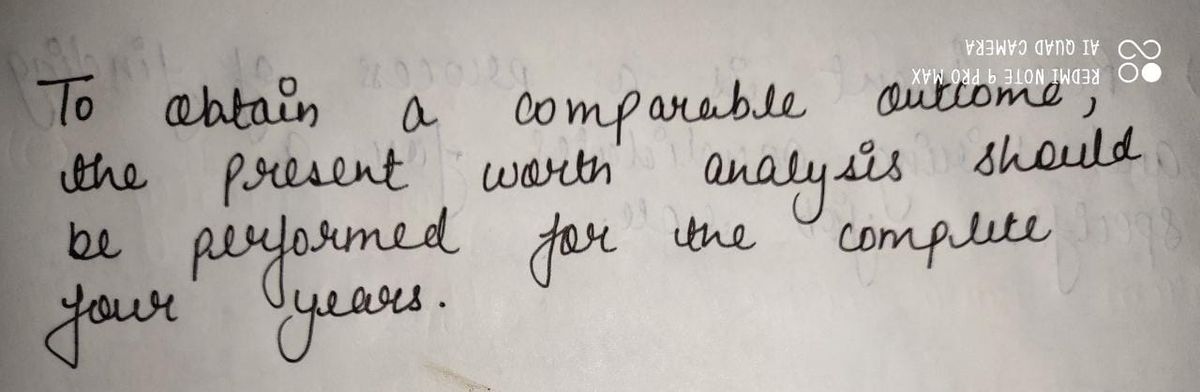 To obtain a comparable outcome,
the present worth analysis should
be performed for the complete
four years.
REDMI NOTE 9 PRO MAX
AI QUAD CAMERA